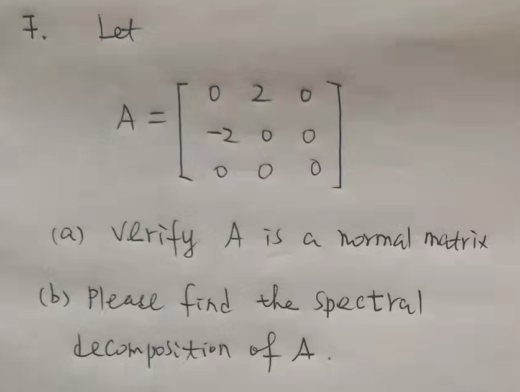 7. Let
A = [ 0 2 0
-2 0 0
0 0 0 ]
(a) verify A is a normal matrix
(b) Please find the spectral
decomposition of A.